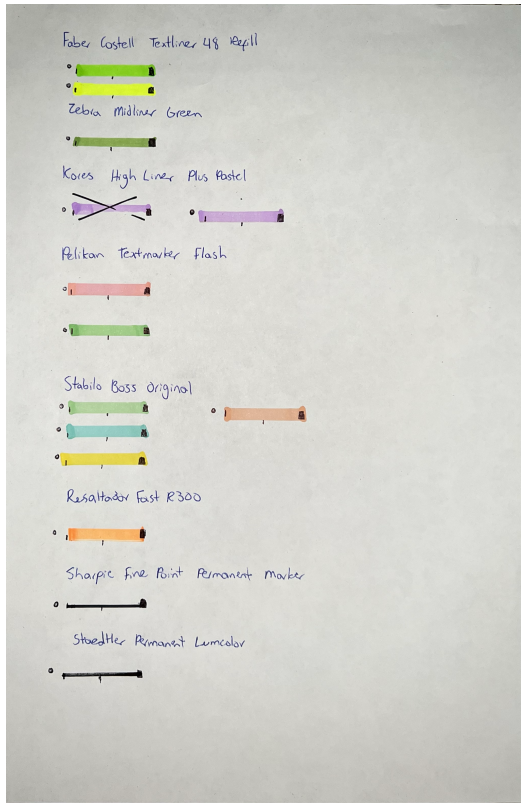 Faber Costell Textliner 48 Refill
Zebra Midliner Green
Kores High Liner Plus Pastel
Pelikan Textmarker Flash
Stabilo Boss Original
Resaltador Fast R300
Sharpie Fine Point Permanent Marker
Staedtler Permanent Lumcolor